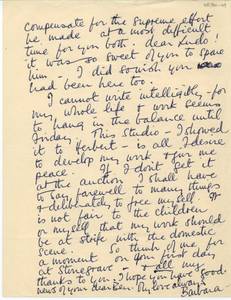 compensate for the supreme effort
he made at a most difficult
time for you both. dear Ludo!
it was so sweet of you to spare
him – I did so wish you
had been here too.
I cannot write intelligibly – for
my whole life & work seems
to hang in the balance until
Friday. This Studio – I showed
it to Herbert – is all I desire
to develop my work & for me
peace. If I don't get it
at the auction I shall have
to say farewell to many things
& deliberately to free myself. It
is not fair to the children
or myself that my work should
be at strife with the domestic
scene. So think of me for
a moment on your first day
at Stonegrave & all my
thanks to you. I hope you have good
news of your dear Ben. My love always
Barbara